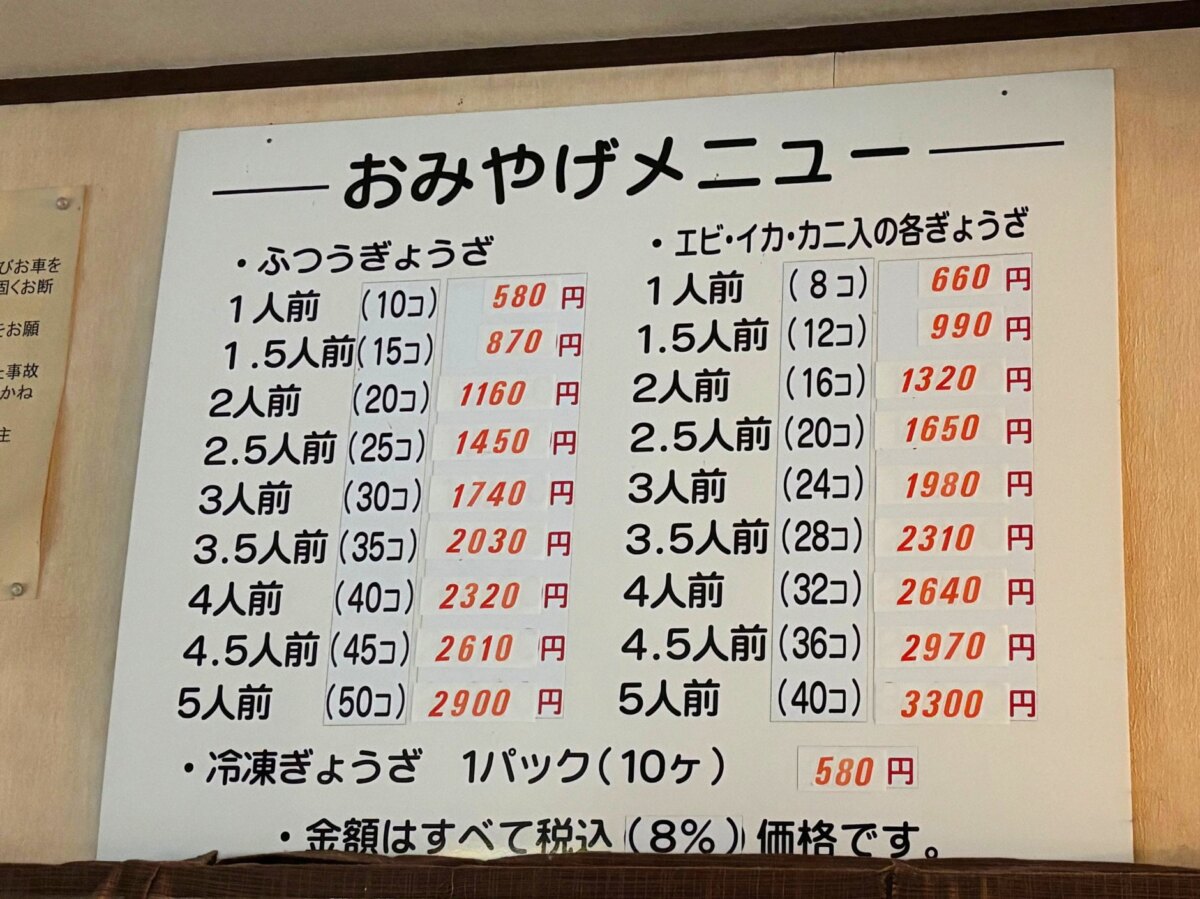 おみやげメニュー
・ふつうぎょうざ
1人前 (10コ) 580 円
1.5人前 (15コ) 870 円
2人前 (20コ) 1160 円
2.5人前 (25コ) 1450 円
3人前 (30コ) 1740 円
3.5人前 (35コ) 2030 円
4人前 (40コ) 2320 円
4.5人前 (45コ) 2610 円
5人前 (50コ) 2900 円
・エビ・イカ・カニ入の各ぎょうざ
1人前 (8コ) 660 円
1.5人前 (12コ) 990 円
2人前 (16コ) 1320 円
2.5人前 (20コ) 1650 円
3人前 (24コ) 1980 円
3.5人前 (28コ) 2310 円
4人前 (32コ) 2640 円
4.5人前 (36コ) 2970 円
5人前 (40コ) 3300 円
・冷凍ぎょうざ 1パック(10ヶ) 580 円
・金額はすべて税込(8%)価格です。
びお車を
固くお断
をお願
た事故
かね
主